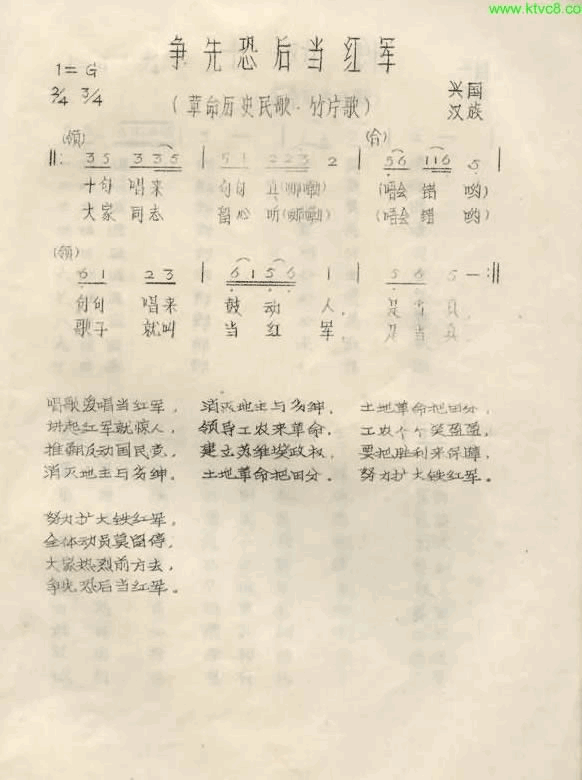 www.ktvc8.co
争先恐后当红军
1=G
2/4 3/4
(革命历史民歌·竹片歌)
兴国
汉族
(领) (合)
‖: 35 335 | 51 223 2 | 56 116 5 |
十句 唱来 句句 真(哪嘞) (唔会 错 哟)
大家 同志 留心 听(哪嘞) (唔会 错 哟)
(领)
61 23 | 6156 1 | 5 6 5 — :‖
句句 唱来 鼓动 人, 是当真
歌子 就叫 当红 军, 是当真
唱歌爱唱当红军, 消灭地主与豪绅, 土地革命把田分,
讲起红军就惊人, 领导工农来革命, 工农个个笑盈盈,
推翻反动国民党, 建立苏维埃政权, 要把胜利来保障,
消灭地主与豪绅。 土地革命把田分。 努力扩大铁红军。
努力扩大铁红军,
全体动员莫留停,
大家热烈前方去,
争先恐后当红军。